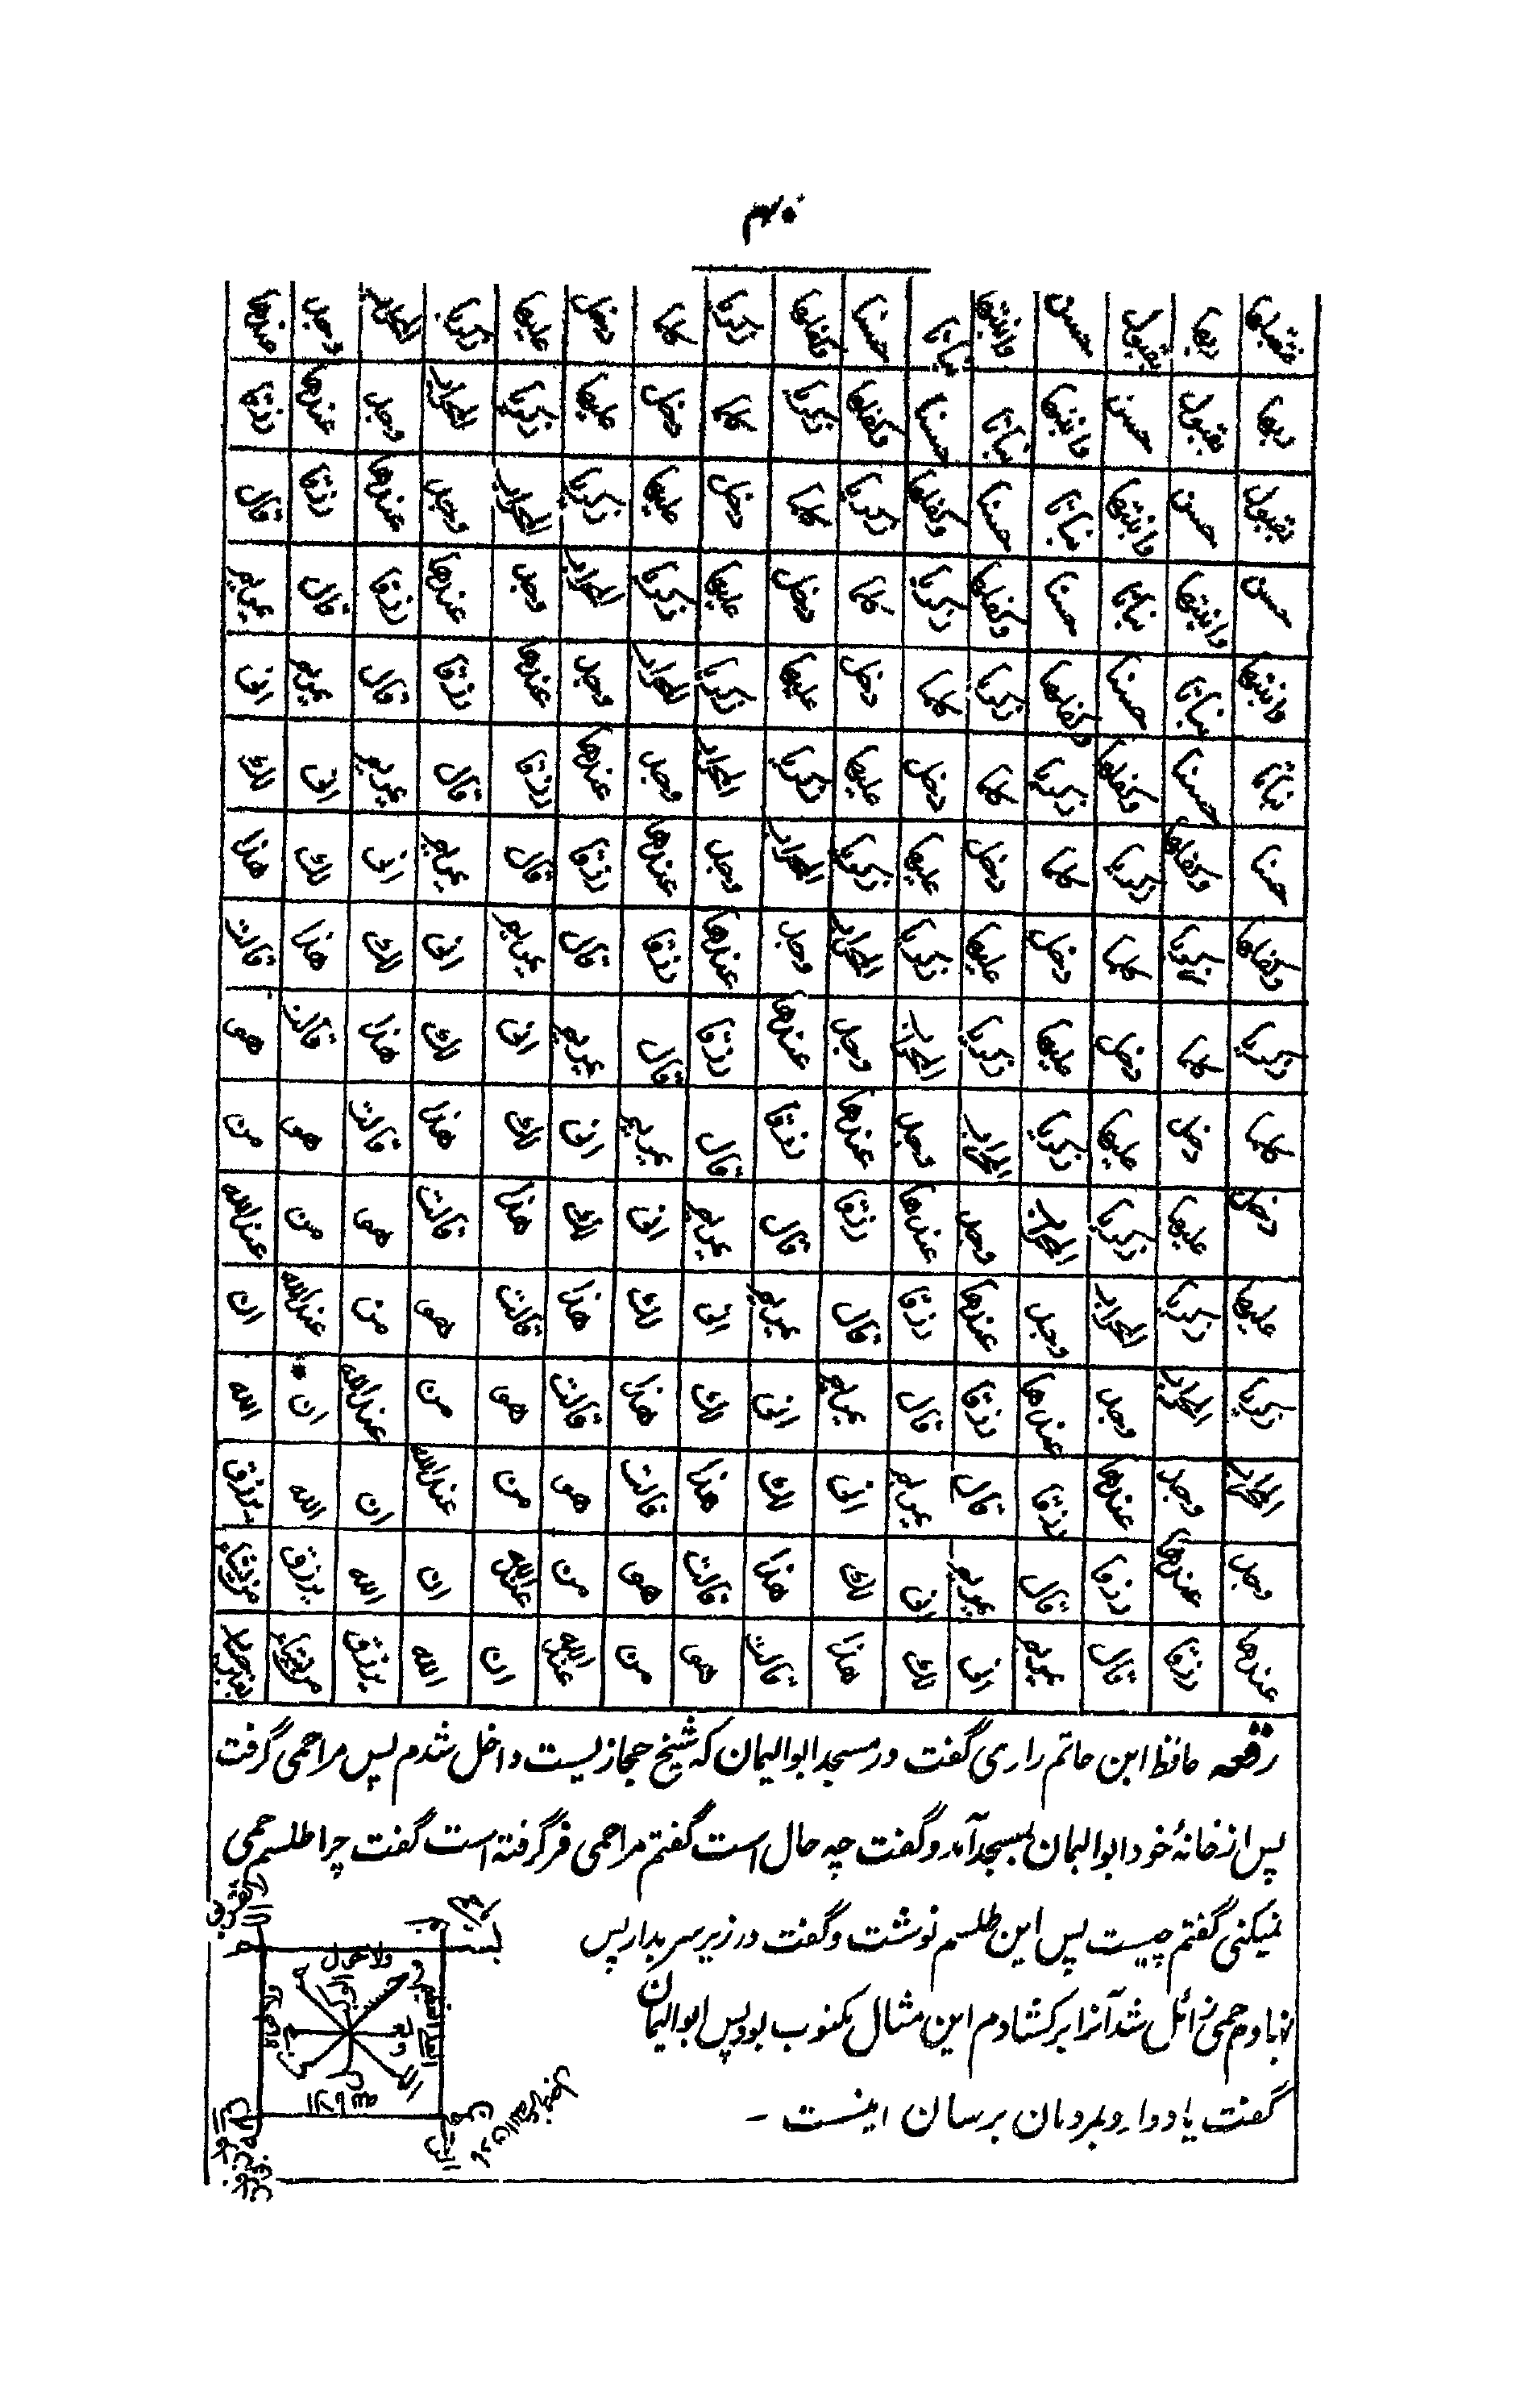 ۴۰
فتقبلها ربها بقبول حسن وانبتها نباتا حسنا وكفلها زكريا كلما دخل عليها زكريا المحراب وجد عندها
ربها بقبول حسن وانبتها نباتا حسنا وكفلها زكريا كلما دخل عليها زكريا المحراب وجد عندها رزقا
بقبول حسن وانبتها نباتا حسنا وكفلها زكريا كلما دخل عليها زكريا المحراب وجد عندها رزقا قال
حسن وانبتها نباتا حسنا وكفلها زكريا كلما دخل عليها زكريا المحراب وجد عندها رزقا قال يمريم
وانبتها نباتا حسنا وكفلها زكريا كلما دخل عليها زكريا المحراب وجد عندها رزقا قال يمريم انى
نباتا حسنا وكفلها زكريا كلما دخل عليها زكريا المحراب وجد عندها رزقا قال يمريم انى لك
حسنا وكفلها زكريا كلما دخل عليها زكريا المحراب وجد عندها رزقا قال يمريم انى لك هذا
وكفلها زكريا كلما دخل عليها زكريا المحراب وجد عندها رزقا قال يمريم انى لك هذا قالت
زكريا كلما دخل عليها زكريا المحراب وجد عندها رزقا قال يمريم انى لك هذا قالت هو
كلما دخل عليها زكريا المحراب وجد عندها رزقا قال يمريم انى لك هذا قالت هو من
دخل عليها زكريا المحراب وجد عندها رزقا قال يمريم انى لك هذا قالت هو من عندالله
عليها زكريا المحراب وجد عندها رزقا قال يمريم انى لك هذا قالت هو من عندالله ان
زكريا المحراب وجد عندها رزقا قال يمريم انى لك هذا قالت هو من عندالله ان الله
المحراب وجد عندها رزقا قال يمريم انى لك هذا قالت هو من عندالله ان الله يرزق
وجد عندها رزقا قال يمريم انى لك هذا قالت هو من عندالله ان الله يرزق من يشاء
عندها رزقا قال يمريم انى لك هذا قالت هو من عندالله ان الله يرزق من يشاء بغير حساب
رقعه حافظ ابن حاتم رازی گفت در مسجد ابوالیمان که شیخ حجازیست داخل شدم پس مراحمی گرفت
پس از خانهٔ خود ابوالیمان بمسجد آمد و گفت چه حال است گفتم مراحمی فرگرفته است گفت چرا طلسم حمی
نمیکنی گفتم چیست پس این طلسم نوشت و گفت در زیر سر بدار پس
نهادم حمی زائل شد آنرا برکشادم این مثال مکتوب بود پس ابوالیمان
گفت یاد دار و بمردمان برسان اینست -
ولا حول
ولا قوة
الا بالله
العلي العظيم